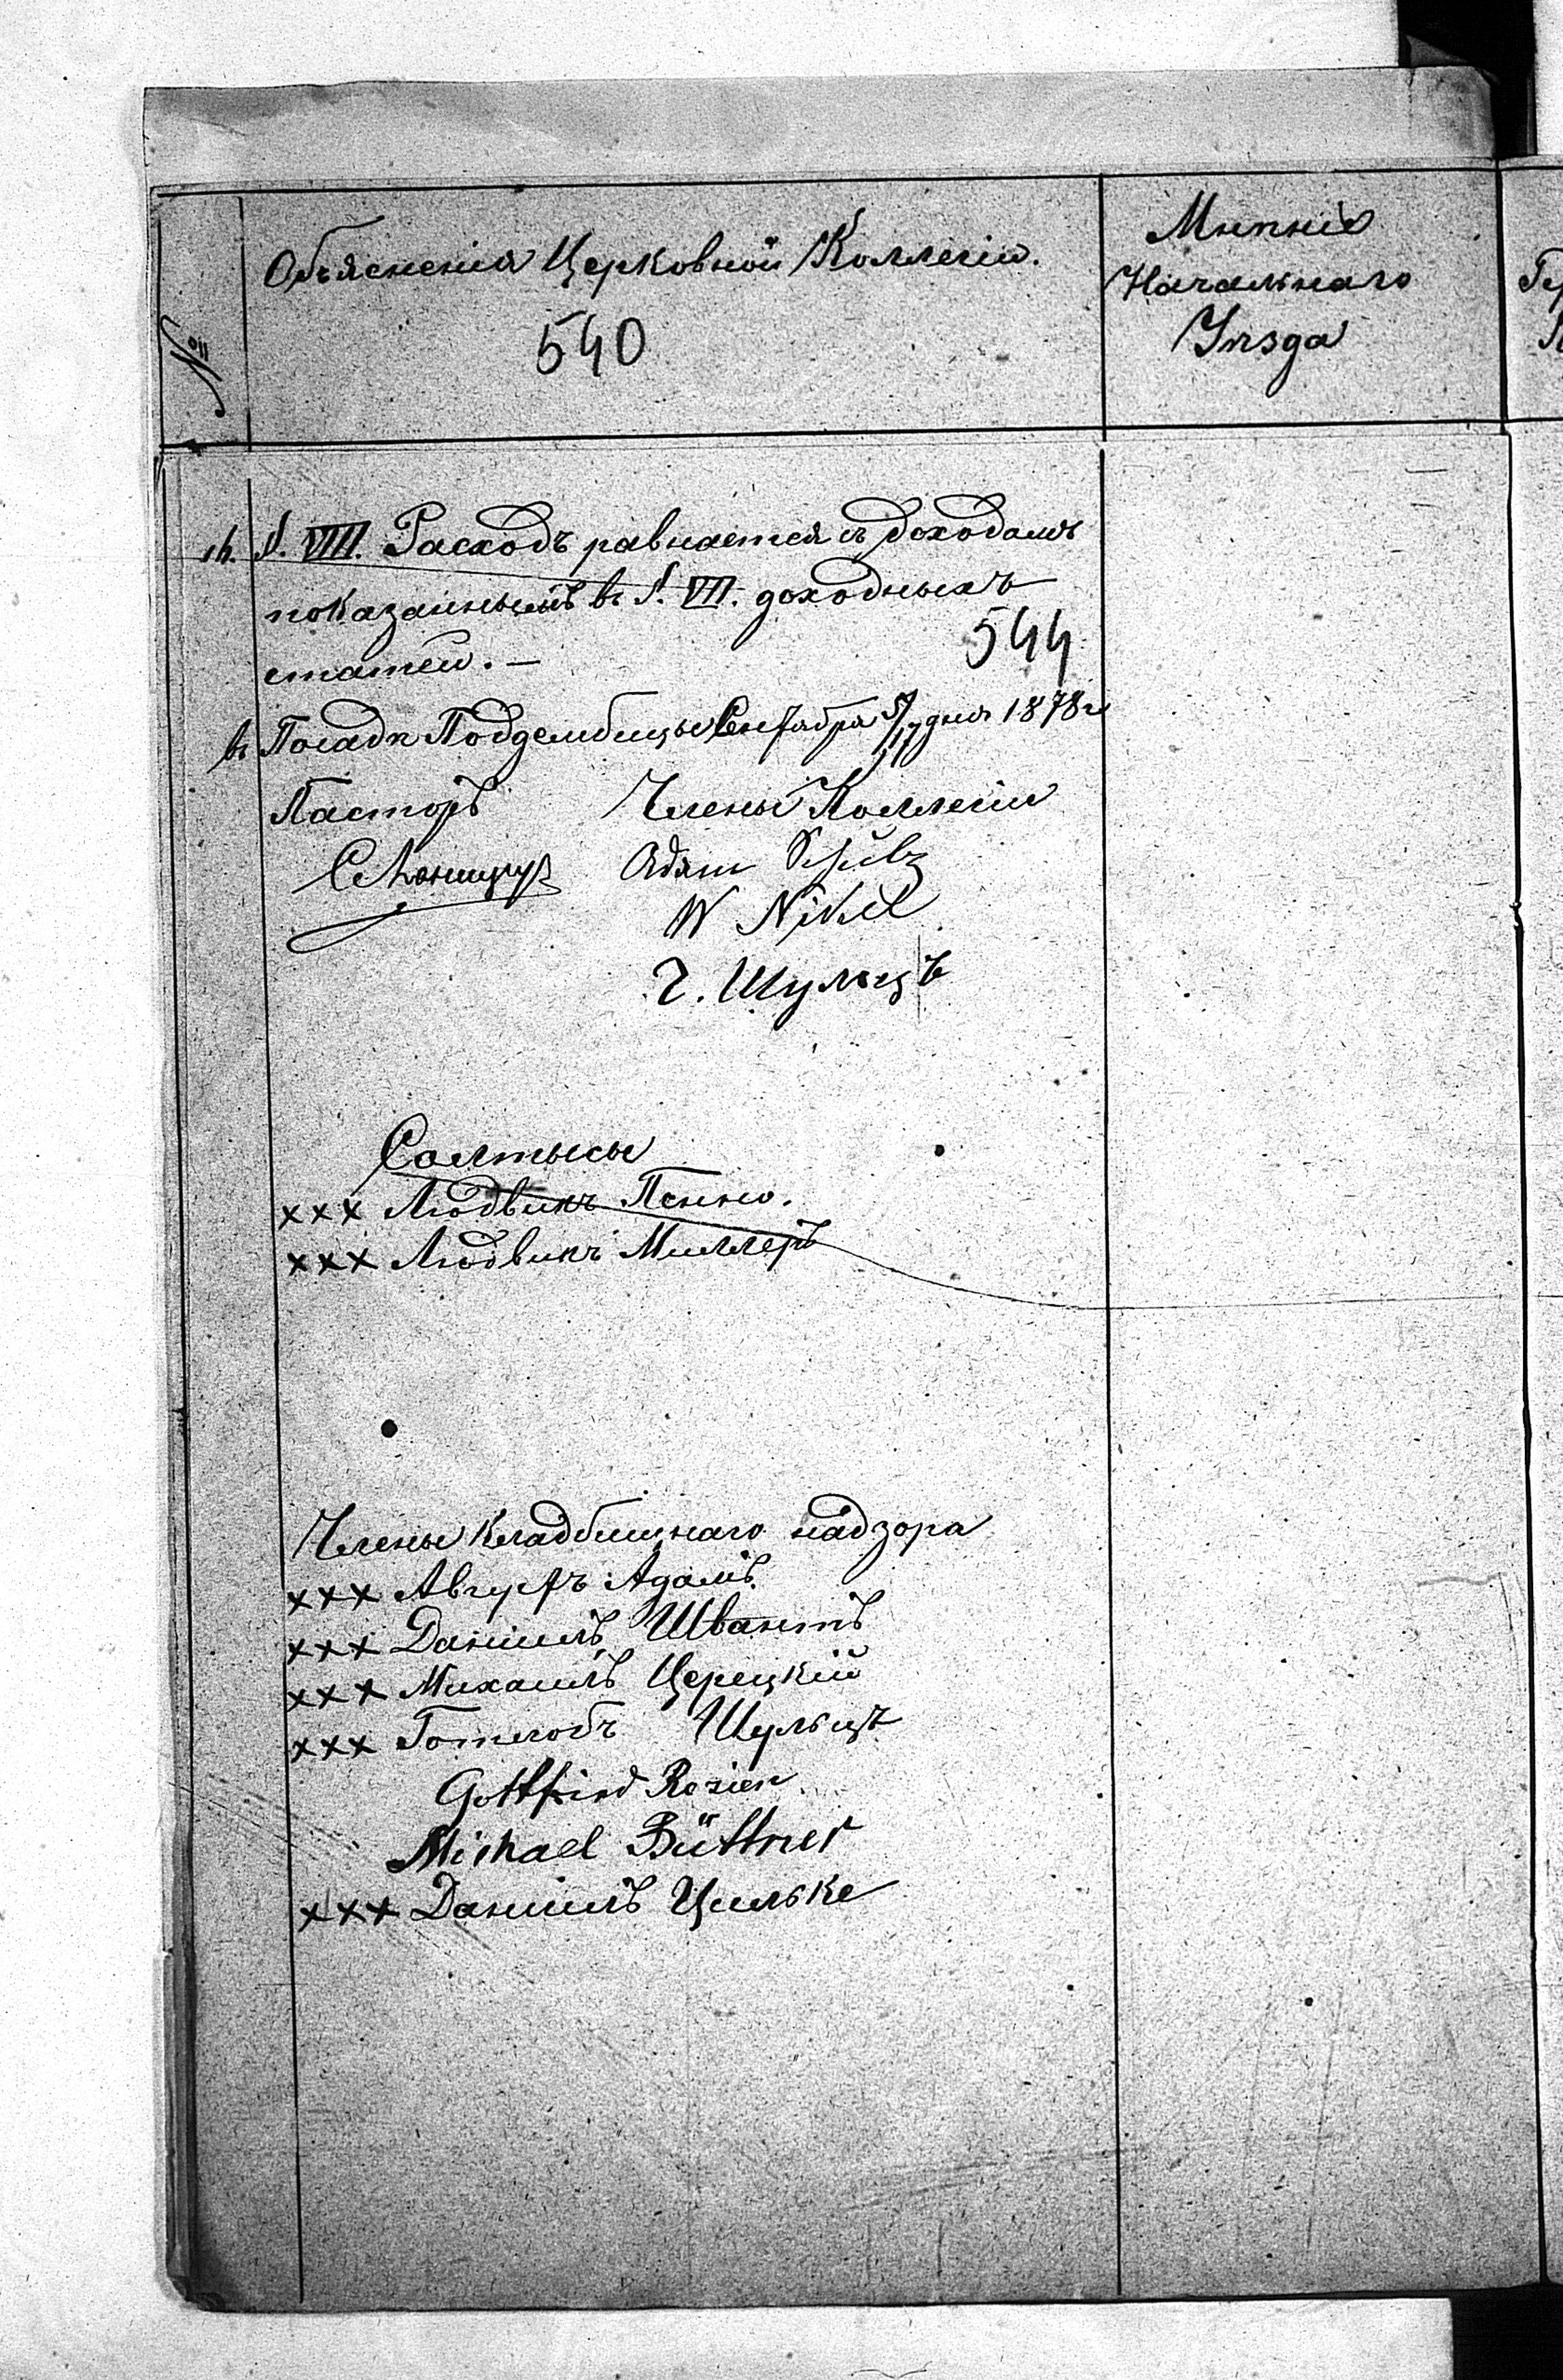 №
Объясненія Церковной Коллегіи.
540
Мнѣніе
Начальнаго
Уѣзда
§. VIII. Расходъ равняется съ доходамъ
показаннымъ въ §. VII. доходныхъ
статей. —
544
въ Посадѣ Поддембицы Сентября 5/17 дня 1878 г
Пасторъ Члены Коллегіи
Adam Schulz
W Nikel
Г. Шульцъ
Солтысы
xxx Людвикъ Пенно.
xxx Людвикъ Миллеръ
Члены кладбищнаго надзора
xxx Августъ Адамъ
xxx Даніилъ Швантъ
xxx Михаилъ Церецкій
xxx Готлобъ Шульцъ
Gottfried Rosier
Michael Büttner
xxx Даніилъ Цильке